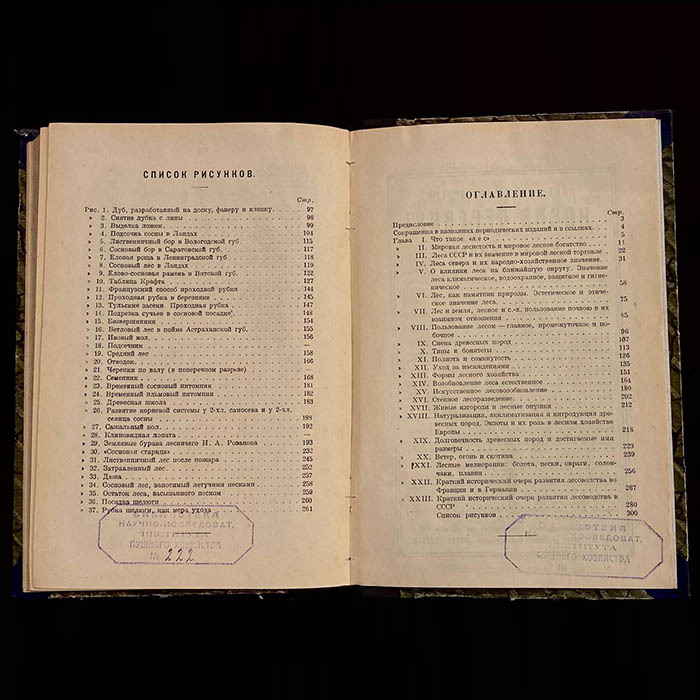 СПИСОК РИСУНКОВ.
Стр.
Рис. 1. Дуб, разработанный на доску, фанеру и клепку 97
» 2. Снятие лубка с липы 98
» 3. Выделка ложек 99
» 4. Подсочка сосны в Ландах 104
» 5. Лиственничный бор в Вологодской губ. 115
» 6. Сосновый бор в Саратовской губ. 117
» 7. Еловая роща в Ленинградской губ. 118
» 8. Сосновый лес в Ландах 119
» 9. Елово-сосновая рамень в Вятской губ. 122
» 10. Таблица Крафта 127
» 11. Французский способ проходной рубки 144
» 12. Проходная рубка в березняке 145
» 13. Тульские засеки. Проходная рубка 147
» 14. Подрезка сучьев в сосновой посадке 148
» 15. Безвершинник 154
» 16. Ветловый лес в пойме Астраханской губ. 155
» 17. Ивовый кол. 156
» 18. Подсечник
» 19. Средний лес 158
» 20. Отводок. 166
» 21. Черенки по валу (в поперечном разрезе)
» 22. Семенник 168
» 23. Временный сосновый питомник 181
» 24. Временный ильмовый питомник 182
» 25. Древесная школа 183
» 26. Развитие корневой системы у 2-хл. самосева и у 2-хл.
сеянца сосны 188
» 27. Сажальный кол. 192
» 28. Клиновидная лопата
» 29. Земляные бурава лесничего Н. А. Розанова 193
» 30. «Сосновая старица» 232
» 31. Лиственничный лес после пожара 245
» 32. Затравленный лес. 252
» 33. Дюна 257
» 34. Сосновый лес, заносимый летучими песками 258
» 35. Остаток леса, засыпанного песком 259
» 36. Посадка шелюги 260
» 37. Рубка шелюги, как мера ухода 261
БИБЛИОТЕКА
НАУЧНО-ИССЛЕДОВАТ.
ИНСТИТУТА
ПУШНОГО ХОЗЯЙСТВА
№ 222
ОГЛАВЛЕНИЕ.
Стр.
Предисловие 3
Сокращения в названиях периодических изданий и в ссылках. 4
Глава I. Что такое «лес» 5
» II. Мировая лесистость и мировое лесное богатство 11
» III. Леса СССР и их значение в мировой лесной торговле 22
» IV. Леса севера и их народно-хозяйственное значение. 31
» V. О влиянии леса на ближайшую округу. Значение
леса климатическое, водоохранное, защитное и гигие-
ническое 58
» VI. Лес, как памятник природы. Эстетическое и этиче-
ское значение леса. 75
» VII. Лес и земля, лесное и с.-х. пользование почвою в их
взаимном отношении 85
» VIII. Пользование лесом—главное, промежуточное и по-
бочное 96
» IX. Смена древесных пород 107
» X. Типы и бонитеты 113
» XI. Полнота и сомкнутость 126
» XII. Уход за насаждениями 135
» XIII. Формы лесного хозяйства 151
» XIV. Возобновление леса естественное 164
» XV. Искусственное лесовозобновление 180
» XVI. Степное лесоразведение. 202
» XVII. Живые изгороди и лесные опушки 212
» XVIII. Натурализация, акклиматизация и интродукция дре-
весных пород. Экзоты и их роль в лесном хозяйстве
Европы 218
» XIX. Долговечность древесных пород и достигаемые ими
размеры 229
» XX. Ветер, огонь и скотина 239
» XXI. Лесные мелиорации: болота, пески, овраги, солон-
чаки, плавни 256
» XXII. Краткий исторический очерк развития лесоводства во
Франции и в Германии 267
» XXIII. Краткий исторический очерк развития лесоводства в
СССР 280
Список рисунков 300
БИБЛИОТЕКА
ИССЛЕДОВАТ.
ИНСТИТУТА
ПУШНОГО ХОЗЯЙСТВА